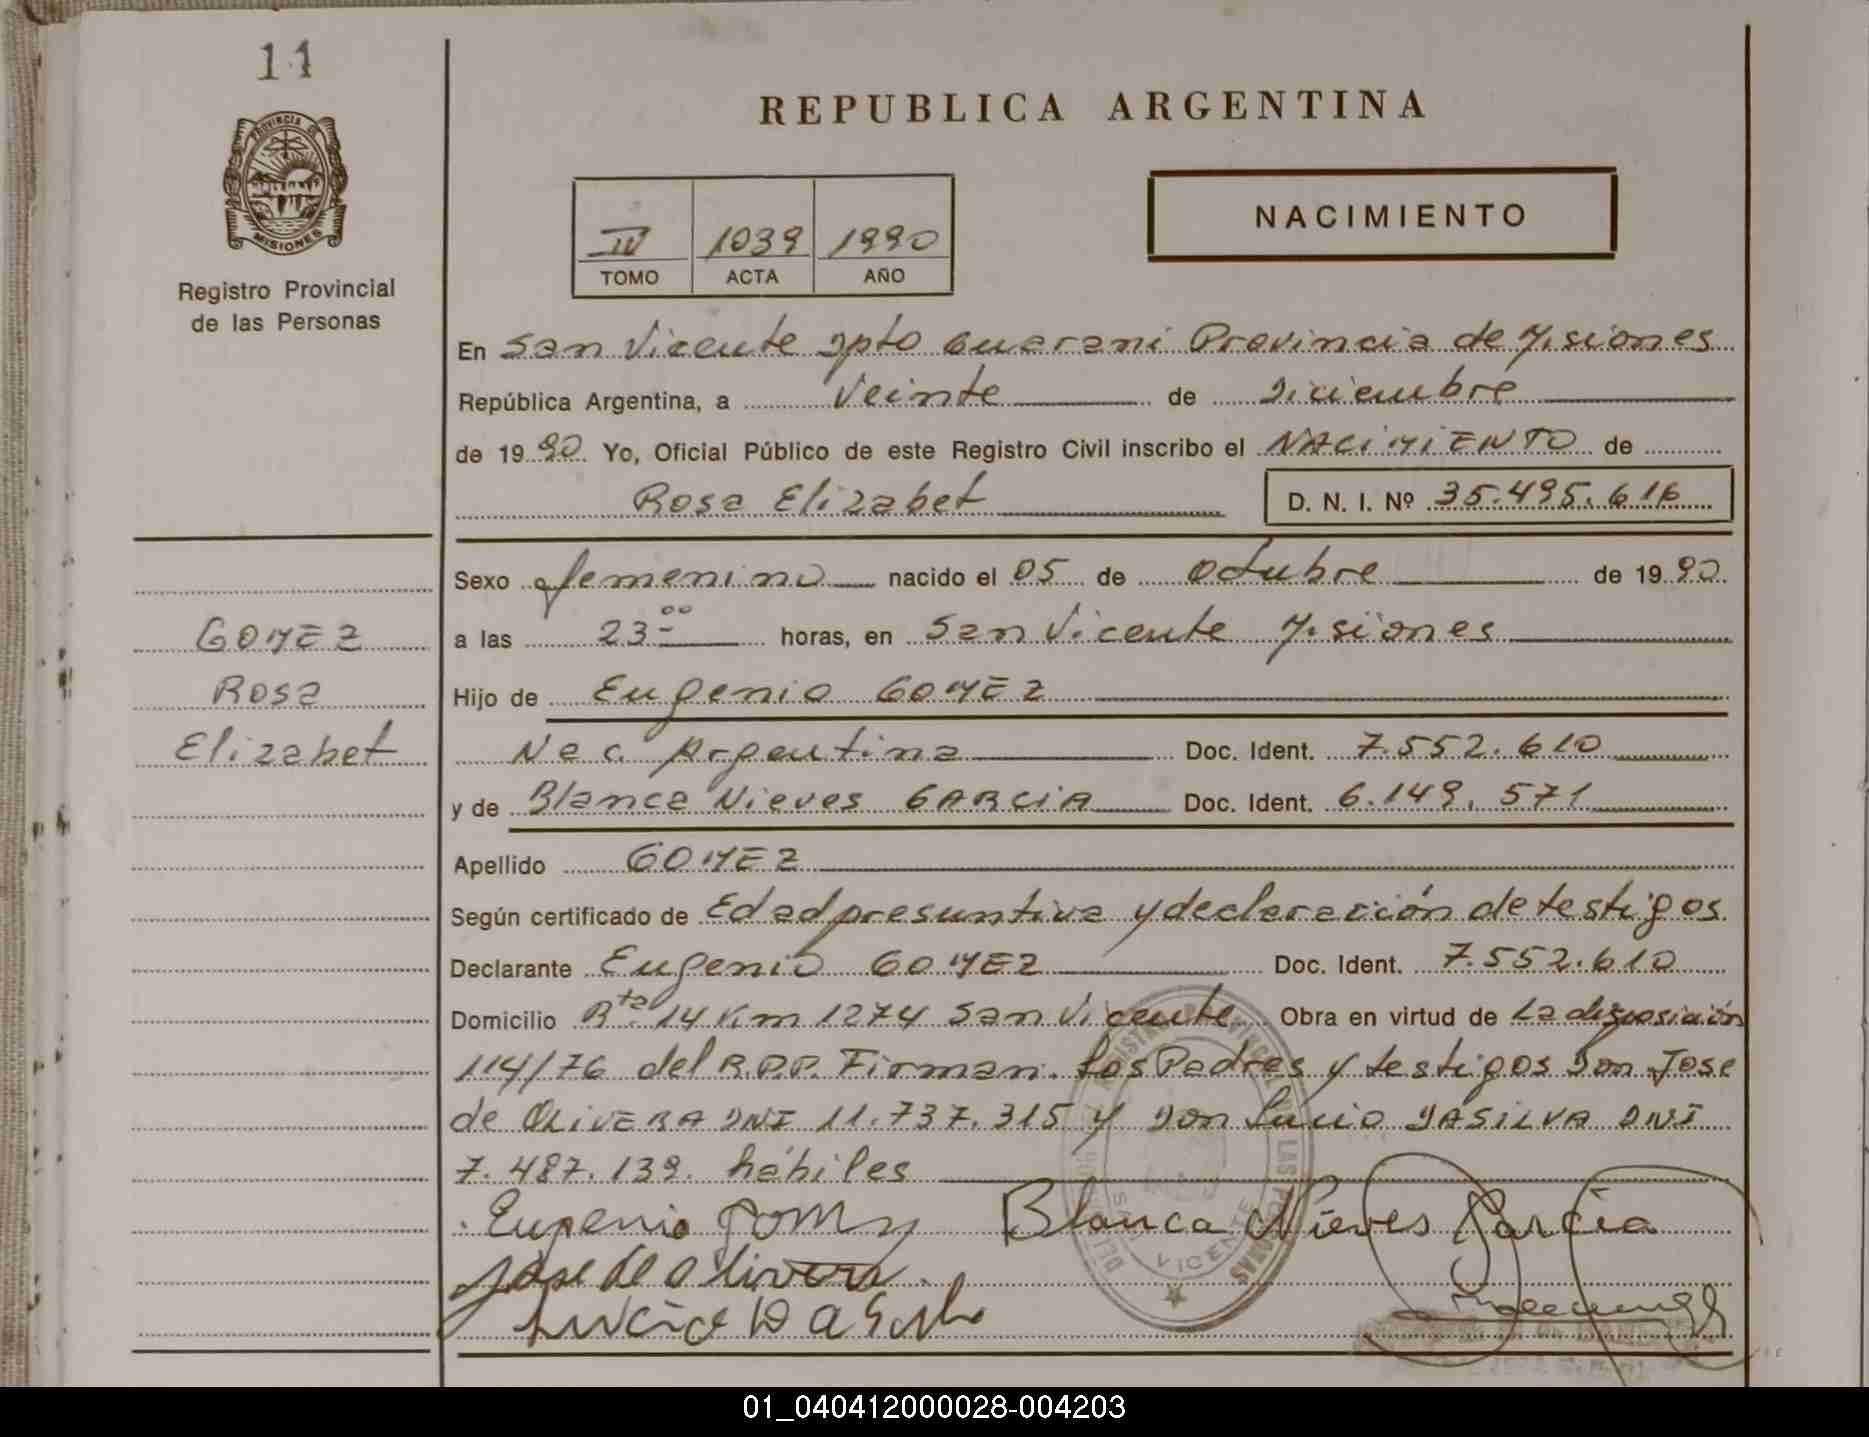 11
REPUBLICA ARGENTINA
PROVINCIA DE
MISIONES
Registro Provincial
de las Personas
IV 1039 1990
TOMO ACTA AÑO
NACIMIENTO
En San Vicente Dpto Guarani Provincia de Misiones
República Argentina, a Veinte de Diciembre
de 1990 Yo, Oficial Público de este Registro Civil inscribo el NACIMIENTO de
Rosa Elizabet D. N. I. Nº 35.495.616
Sexo femenino nacido el 05 de octubre de 1990
a las 23-00 horas, en San Vicente Misiones
GOMEZ
Rosa
Elizabet
Hijo de Eugenio GOMEZ
Nac. Argentina Doc. Ident. 7.552.610
y de Blanca Nieves GARCIA Doc. Ident. 6.149.571
Apellido GOMEZ
Según certificado de Edad presuntiva y declaración de testigos
Declarante Eugenio GOMEZ Doc. Ident. 7.552.610
Domicilio Rta. 14 Km 1274 San Vicente Obra en virtud de La disposición
114/76 del R.P.P. Firman. Los Padres y testigos Don Jose
de OLIVERA DNI 11.737.315 y Don Lucio DASILVA DNI
7.487.139. hábiles
Eugenio Blanca Nieves Garcia
Jose de olivera
Lucio
VICENTE
01_040412000028-004203